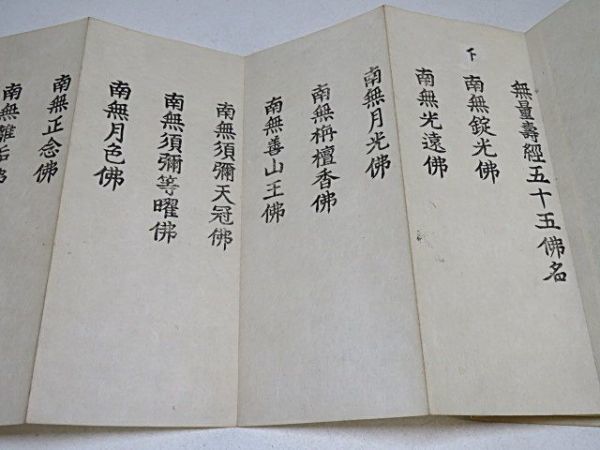 無量壽經五十五佛名
下
南無錠光佛
南無光遠佛
南無月光佛
南無栴檀香佛
南無善山王佛
南無須彌天冠佛
南無須彌等曜佛
南無月色佛
南無正念佛
南無離垢佛